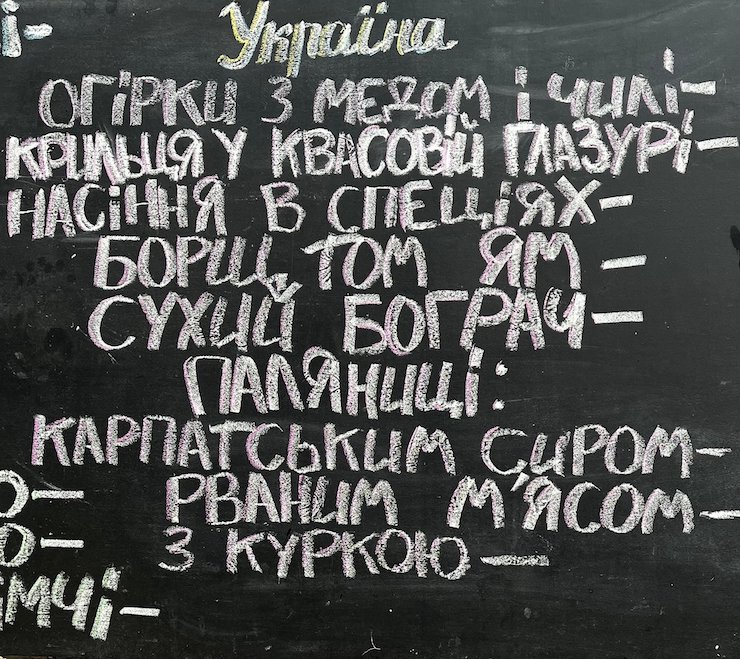 і-
Україна
ОГІРКИ З МЕДОМ І ЧИЛІ-
КРИЛЬЦЯ У КВАСОВІЙ ГЛАЗУРІ-
НАСІННЯ В СПЕЦІЯХ-
БОРЩ ТОМ ЯМ -
СУХИЙ БОГРАЧ-
ПАЛЯНИЦІ:
КАРПАТСЬКИМ СИРОМ-
РВАНИМ М'ЯСОМ-
З КУРКОЮ-